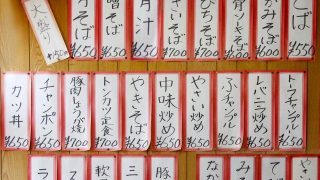 そば
¥650
なかみそば
¥700
骨ソーキそば
¥700
てびちそば
¥700
やさいそば
¥700
月汁
¥650
味噌そば
¥650
そば
¥650
大盛り
トーフチャンプル
¥650
レバニラ炒め
¥650
ふチャンプル
¥650
やさい炒め
¥650
中味炒め
¥650
やきそば
¥650
トンカツ定食
¥700
豚肉しょうが焼
¥700
チャンポン
¥650
カツ丼
¥650
やさ
てび
みそ
なか
豚
三
軟
ス
ラ